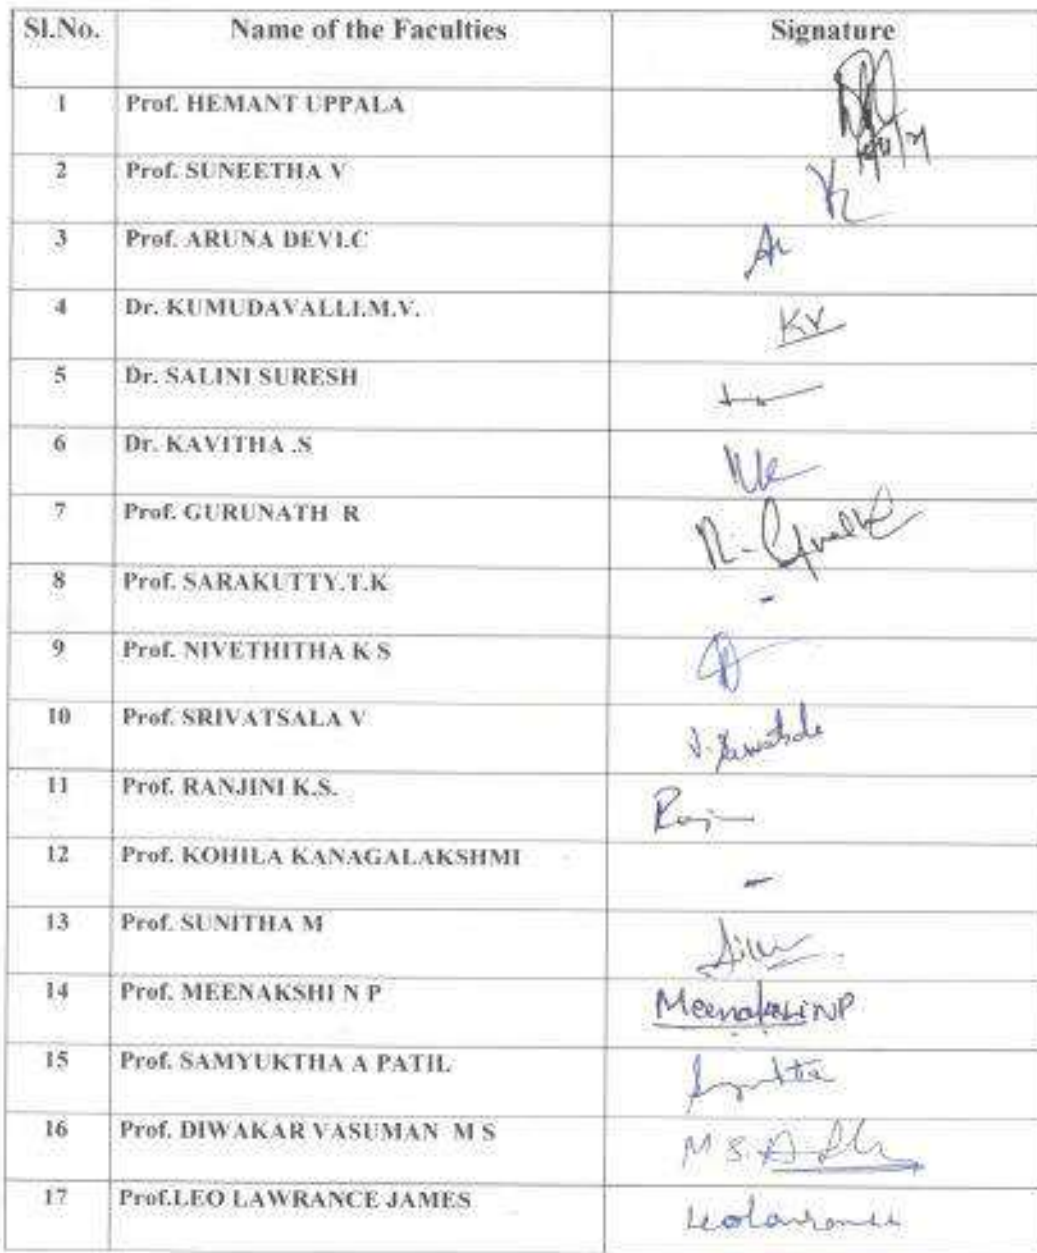 Sl.No. Name of the Faculties Signature
1 Prof. HEMANT UPPALA
2 Prof. SUNEETHA V
3 Prof. ARUNA DEVI.C
4 Dr. KUMUDAVALLI.M.V. KV
5 Dr. SALINI SURESH
6 Dr. KAVITHA .S
7 Prof. GURUNATH R
8 Prof. SARAKUTTY.T.K -
9 Prof. NIVETHITHA K S
10 Prof. SRIVATSALA V
11 Prof. RANJINI K.S.
12 Prof. KOHILA KANAGALAKSHMI -
13 Prof. SUNITHA M
14 Prof. MEENAKSHI N P Meenakshi NP
15 Prof. SAMYUKTHA A PATIL
16 Prof. DIWAKAR VASUMAN M S M S.
17 Prof.LEO LAWRANCE JAMES